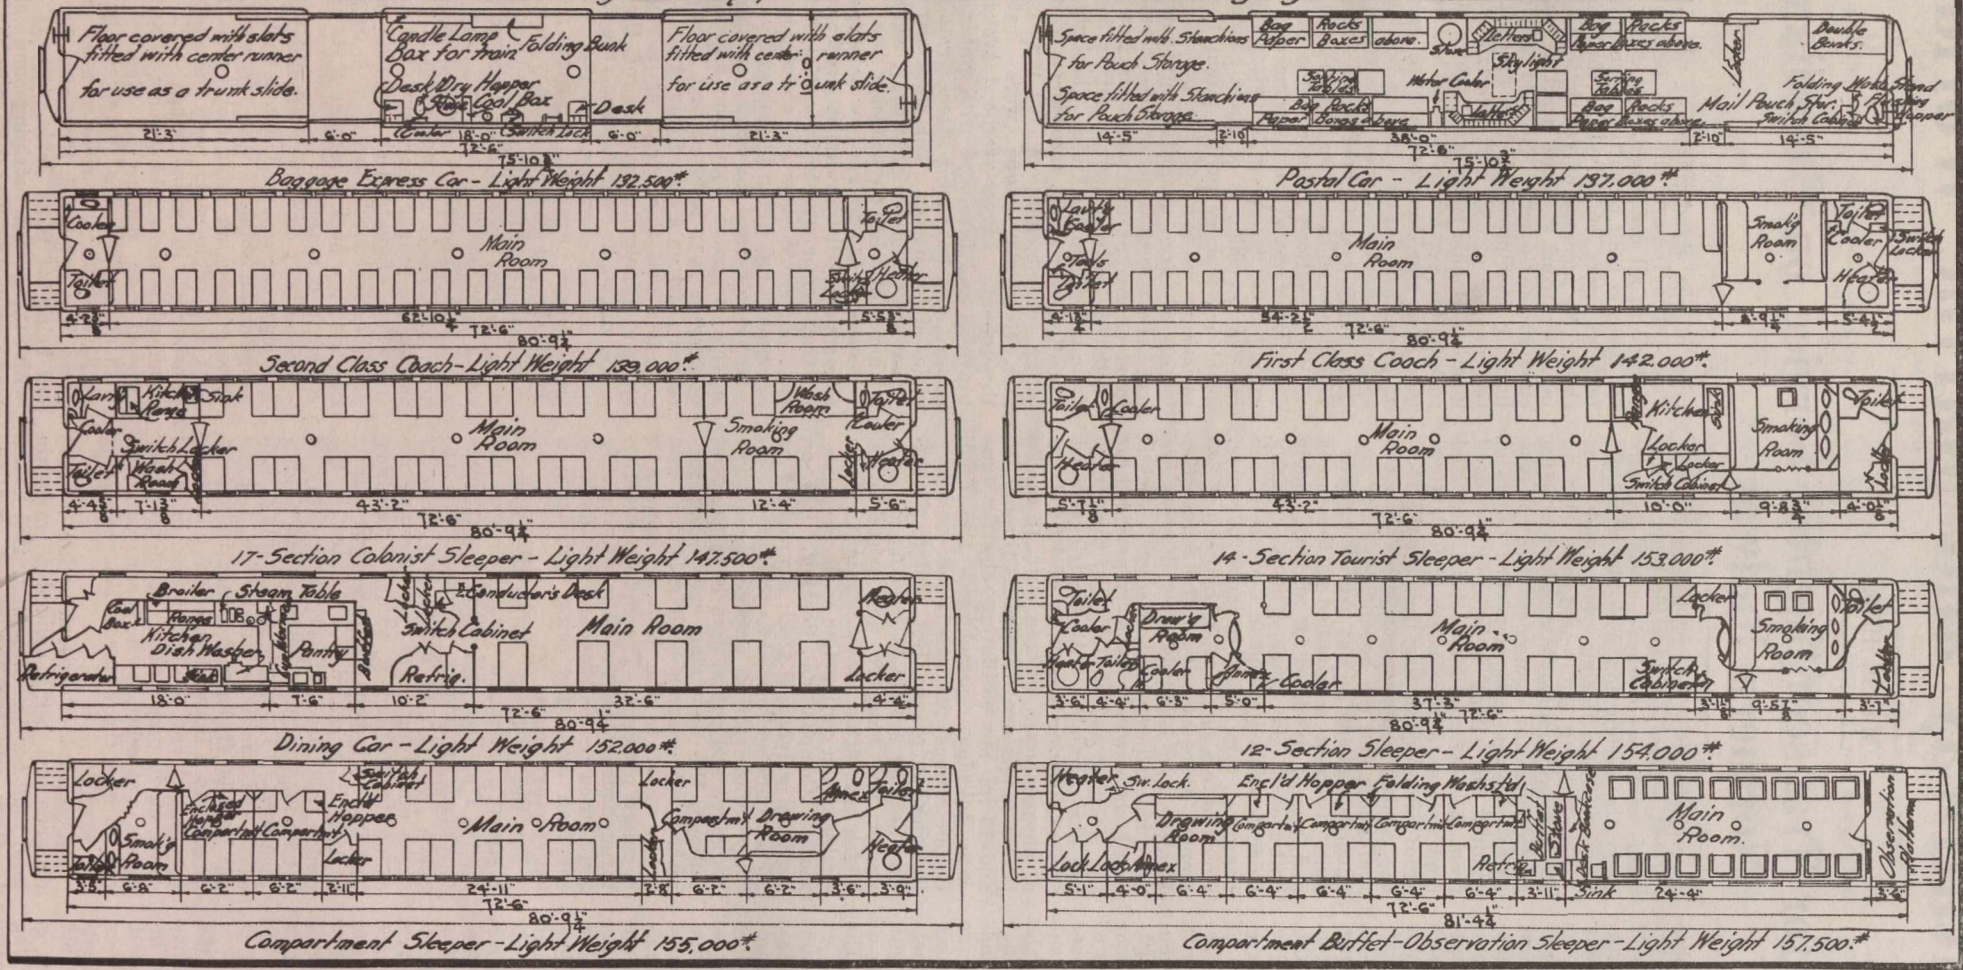 Floor covered with slats
fitted with center runner
for use as a trunk slide.
Candle Lamp
Box for train
Folding Bunk
Desk
Dry Hopper
Stove
Coal Box
Desk
Cooler
Switch Lock
Floor covered with slats
fitted with center runner
for use as a trunk slide.
21'-3"
6'-0"
18'-0"
6'-0"
21'-3"
72'-6"
75'-10 3/4"
Baggage Express Car - Light Weight 132.500#
Space fitted with Stanchions
for Pouch Storage.
Space fitted with Stanchions
for Pouch Storage.
Bag Racks
Paper Boxes above.
Stove
Letters
Skylight
Bag Racks
Paper Boxes above.
Locker
Double
Bunks.
Sorting
Tables
Water Cooler
Sorting
Tables
Folding Wash Stand
Bag Racks
Paper Boxes above
Letters
Bag Racks
Paper Boxes above.
Mail Pouch Stor.
Switch Cabinet
Flushing
Hopper
14'-5"
2'-10"
38'-0"
2'-10"
14'-5"
72'-6"
75'-10 3/4"
Postal Car - Light Weight 137.000#
Cooler
Toilet
Main
Room
Toilet
Switch
Locker
Heater
4'-2 3/8"
62'-10 1/4"
5'-5 3/8"
72'-6"
80'-9 1/4"
Second Class Coach - Light Weight 139.000#
Lav'ty
Cooler
Tools
Toilet
Main
Room
Smok'g
Room
Toilet
Cooler
Switch
Locker
Heater
4'-1 3/4"
54'-2 1/2"
8'-9 1/4"
5'-4 1/2"
72'-6"
80'-9 1/4"
First Class Coach - Light Weight 142.000#
Lav'y
Kitchen
Range
Sink
Cooler
Switch Locker
Toilet
Wash
Room
Locker
Main
Room
Smoking
Room
Wash
Room
Toilet
Cooler
Locker
Heater
4'-4 5/8"
7'-1 3/8"
43'-2"
12'-4"
5'-6"
72'-6"
80'-9 1/4"
17-Section Colonist Sleeper - Light Weight 147.500#
Toilet
Cooler
Heater
Main
Room
Range
Kitchen
Sink
Locker
Locker
Switch Cabinet
Smoking
Room
Toilet
Locker
5'-7 1/8"
43'-2"
10'-0"
9'-8 3/4"
4'-0 1/8"
72'-6"
80'-9 1/4"
14-Section Tourist Sleeper - Light Weight 153.000#
Broiler
Steam Table
Coal
Box
Range
Kitchen
Dish Washer
Cup Warmer
Pantry
Refrigerator
Sink
Buffet
Locker
Locker
Conductor's Desk
Switch Cabinet
Refrig.
Main Room
Heater
Locker
18'-0"
7'-6"
10'-2"
32'-6"
4'-4"
72'-6"
80'-9 1/4"
Dining Car - Light Weight 152.000#
Toilet
Cooler
Locker
Draw'g
Room
Heater
Toilet
Cooler
Annex
Cooler
Main
Room
Locker
Switch
Cabinet
Smoking
Room
Toilet
Locker
3'-6"
4'-4"
6'-3"
5'-0"
37'-3"
3'-1 1/8"
9'-5 7/8"
3'-7"
72'-6"
80'-9 1/4"
12-Section Sleeper - Light Weight 154.000#
Locker
Smok'g
Room
Toilet
Enclosed
Hopper
Compartm't
Compartm't
Switch
Cabinet
Encl'd
Hopper
Locker
Main Room
Locker
Locker
Compartm't
Drawing
Room
Annex
Toilet
Heater
3'-5"
6'-8"
6'-2"
6'-2"
2'-11"
24'-11"
2'-8"
6'-2"
6'-2"
3'-6"
3'-9"
72'-6"
80'-9 1/4"
Compartment Sleeper - Light Weight 155,000#
Heater
Sw. Lock.
Encl'd Hopper
Folding Washst'd
Drawing
Room
Compartm't
Compartm't
Compartm't
Compartm't
Lock
Lock
Annex
Buffet
Stove
Refrig
Sink
Desk
Bookcase
Main
Room.
Observation
Platform
5'-1"
4'-0"
6'-4"
6'-4"
6'-4"
6'-4"
6'-4"
3'-11"
24'-4"
72'-6"
81'-4 1/4"
Compartment Buffet-Observation Sleeper - Light Weight 157.500#